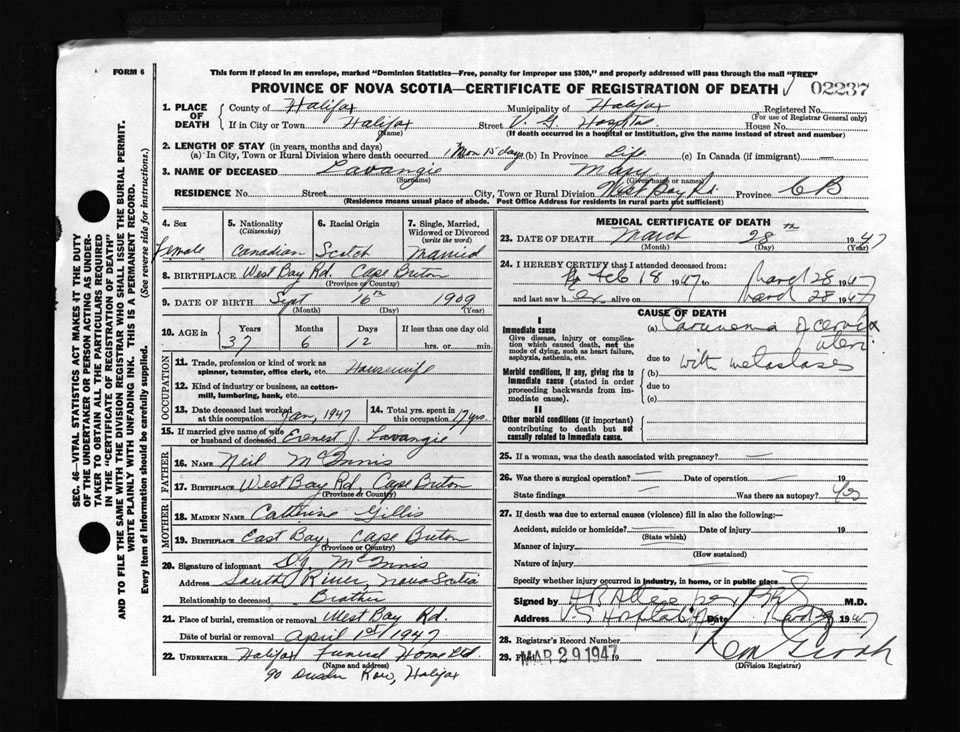 FORM 6
This form if placed in an envelope, marked "Dominion Statistics—Free, penalty for improper use $300," and properly addressed will pass through the mail "FREE"
PROVINCE OF NOVA SCOTIA—CERTIFICATE OF REGISTRATION OF DEATH 02237
SEC. 46—VITAL STATISTICS ACT MAKES IT THE DUTY
OF THE UNDERTAKER OR PERSON ACTING AS UNDER-
TAKER TO OBTAIN ALL THE PARTICULARS REQUIRED
IN THE "CERTIFICATE OF REGISTRATION OF DEATH"
AND TO FILE THE SAME WITH THE DIVISION REGISTRAR WHO SHALL ISSUE THE BURIAL PERMIT.
WRITE PLAINLY WITH UNFADING INK. THIS IS A PERMANENT RECORD.
Every item of information should be carefully supplied. (See reverse side for instructions.)
1. PLACE OF DEATH
County of Halifax Municipality of Halifax Registered No.
(For use of Registrar General only)
If in City or Town Halifax Street V. G. Hospital House No.
(Name) (If death occurred in a hospital or institution, give the name instead of street and number)
2. LENGTH OF STAY (in years, months and days)
(a) In City, Town or Rural Division where death occurred 1 Mon 15 days (b) In Province Life (c) In Canada (if immigrant) —
3. NAME OF DECEASED Lavangie Mary
(Surname) (Given name or names)
RESIDENCE No. Street City, Town or Rural Division West Bay Rd. Province C B
(Residence means usual place of abode. Post Office Address for residents in rural parts not sufficient)
4. Sex
Female
5. Nationality
(Citizenship)
Canadian
6. Racial Origin
Scotch
7. Single, Married,
Widowed or Divorced
(write the word)
Married
8. BIRTHPLACE West Bay Rd. Cape Breton
(Province or Country)
9. DATE OF BIRTH Sept 16th 1909
(Month) (Day) (Year)
10. AGE in Years Months Days If less than one day old
37 6 12 hrs. or min.
OCCUPATION
11. Trade, profession or kind of work as
spinner, teamster, office clerk, etc. Housewife
12. Kind of industry or business, as cotton-
mill, lumbering, bank, etc.
13. Date deceased last worked
at this occupation Jan, 1947
14. Total yrs. spent in
this occupation 17 yrs.
15. If married give name of wife
or husband of deceased Ernest J. Lavangie
FATHER
16. NAME Neil McInnis
17. BIRTHPLACE West Bay Rd, Cape Breton
(Province or Country)
MOTHER
18. MAIDEN NAME Catherine Gillis
19. BIRTHPLACE East Bay, Cape Breton
(Province or Country)
20. Signature of informant D.J. McInnis
Address South River, Nova Scotia
Relationship to deceased Brother
21. Place of burial, cremation or removal West Bay Rd.
Date of burial or removal April 1st 1947
22. UNDERTAKER Halifax Funeral Home Ltd.
(Name and address)
90 Row, Halifax
MEDICAL CERTIFICATE OF DEATH
23. DATE OF DEATH March 28th 1947
(Month) (Day) (Year)
24. I HEREBY CERTIFY that I attended deceased from:
Feb 18 1947 to March 28 1947
and last saw her alive on March 28 1947
CAUSE OF DEATH
I
Immediate cause
Give disease, injury or complica-
tion which caused death, not the
mode of dying, such as heart failure,
asphyxia, asthenia, etc.
(a) Carcinoma of cervix
uteri
due to with metastases
Morbid conditions, if any, giving rise to
immediate cause (stated in order
proceeding backwards from im-
mediate cause).
(b)
due to
(c)
II
Other morbid conditions (if important)
contributing to death but not
causally related to immediate cause.
25. If a woman, was the death associated with pregnancy? —
26. Was there a surgical operation? — Date of operation — 19
State findings Was there an autopsy? Yes
27. If death was due to external causes (violence) fill in also the following:—
Accident, suicide or homicide? Date of injury 19
(State which)
Manner of injury
(How sustained)
Nature of injury
Specify whether injury occurred in industry, in home, or in public place
Signed by M.D.
Address V. G. Hospital Date 1947
28. Registrar's Record Number
29. MAR 29 1947 19
(Division Registrar)